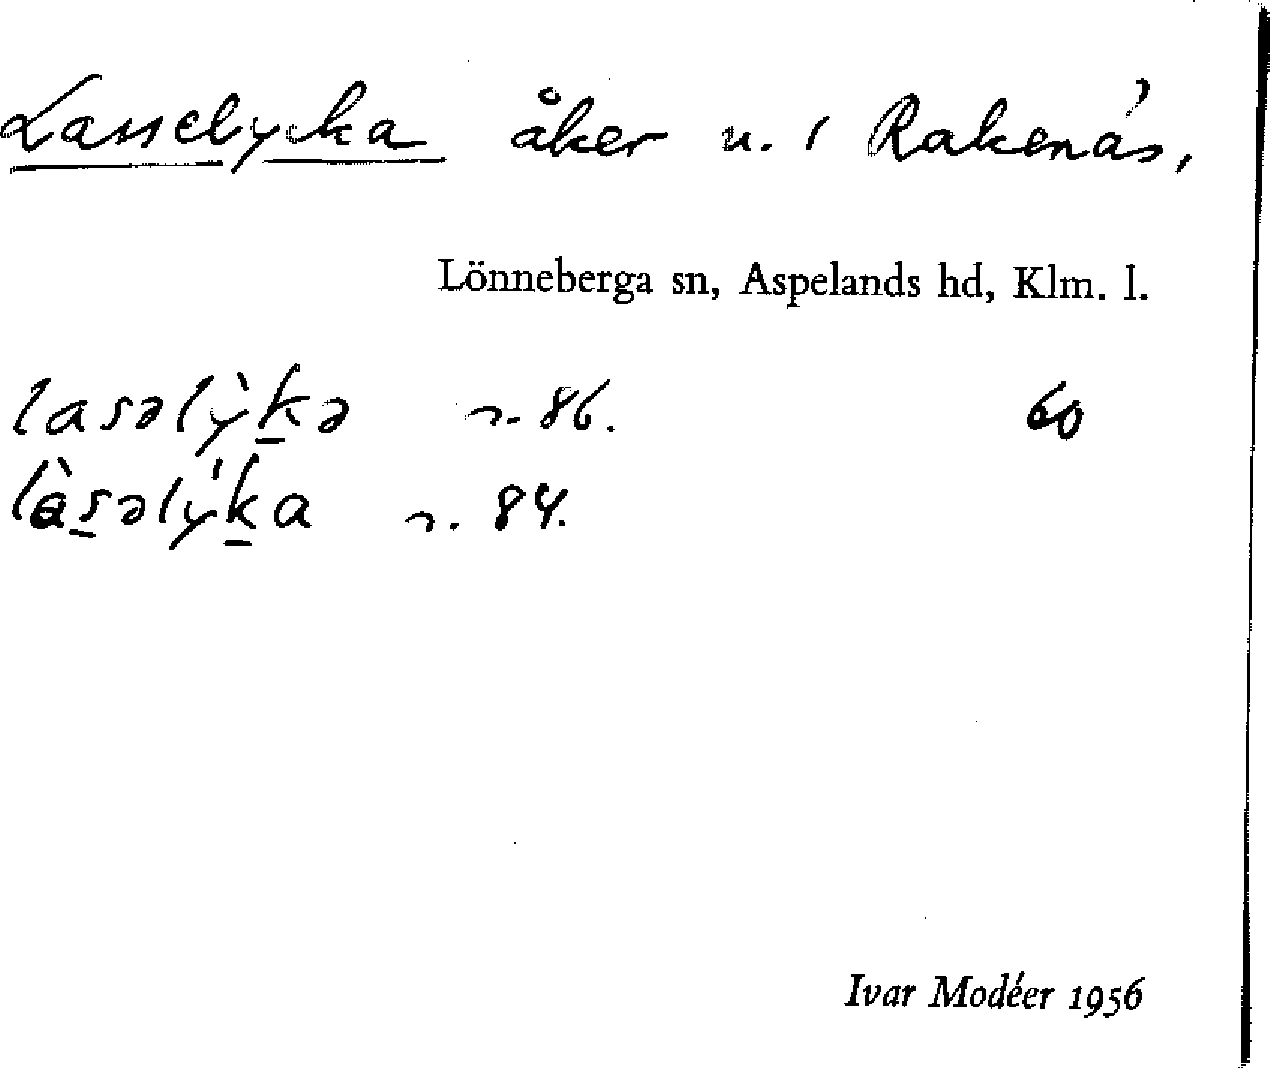 Lasselycka åker n. 1 Rakenäs,
Lönneberga sn, Aspelands hd, Klm. l.
lasəlỳk̲ə n. 86. 60
làs̲əlýk̲a n. 84.
Ivar Modéer 1956